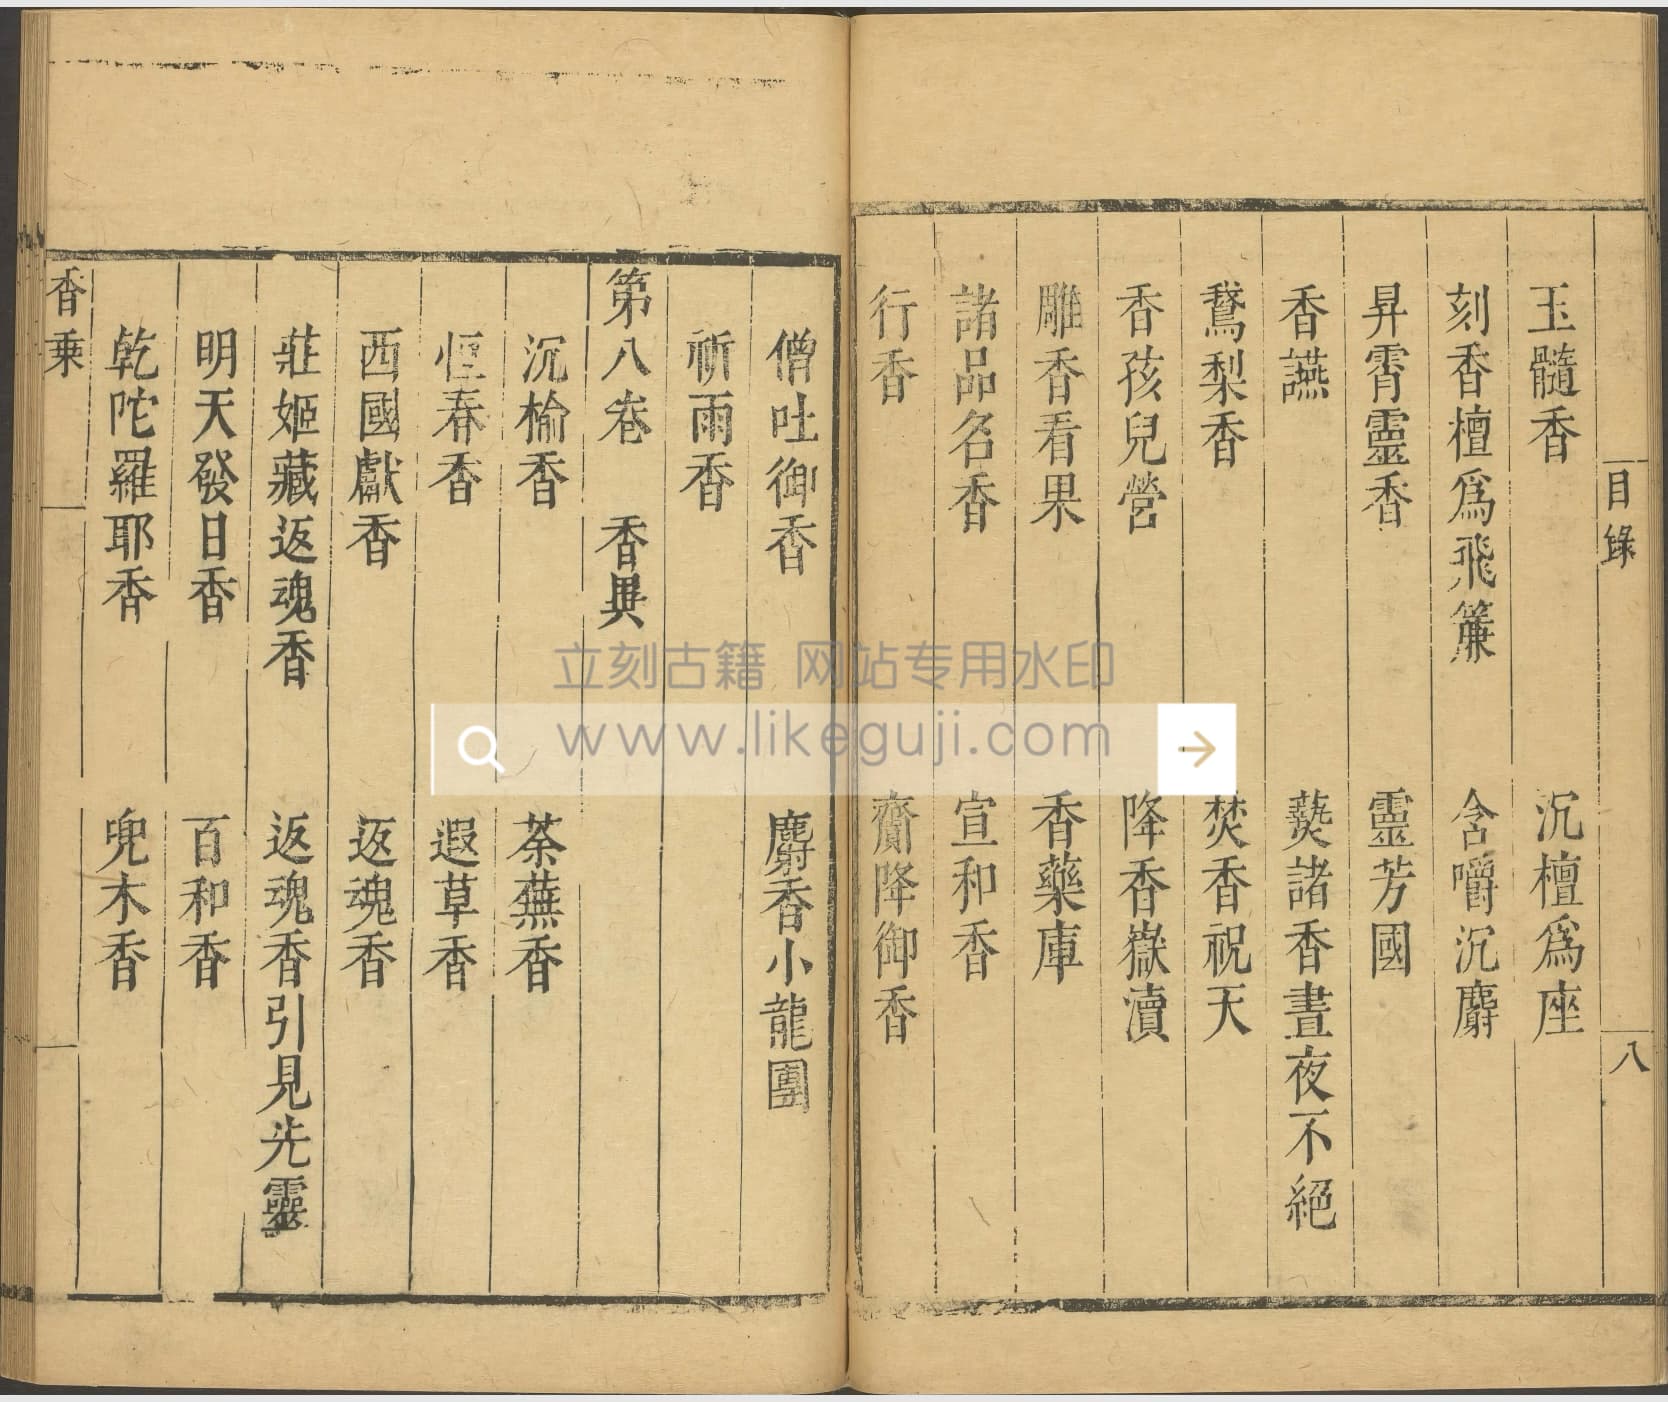 目錄
八
玉髓香 沉檀爲座
刻香檀爲飛簾 含嚼沉麝
昇霄靈香 靈芳國
香讌 爇諸香晝夜不絕
鵞梨香 焚香祝天
香孩兒營 降香嶽瀆
雕香看果 香藥庫
諸品名香 宣和香
行香 齋降御香
僧吐御香 麝香小龍團
祈雨香
第八卷 香異
沉榆香 荼蕪香
恒春香 遐草香
西國獻香 返魂香
莊姬藏返魂香 返魂香引見先靈
明天發日香 百和香
乾陀羅耶香 兜木香
香乗
立刻古籍 网站专用水印
www.likeguji.com